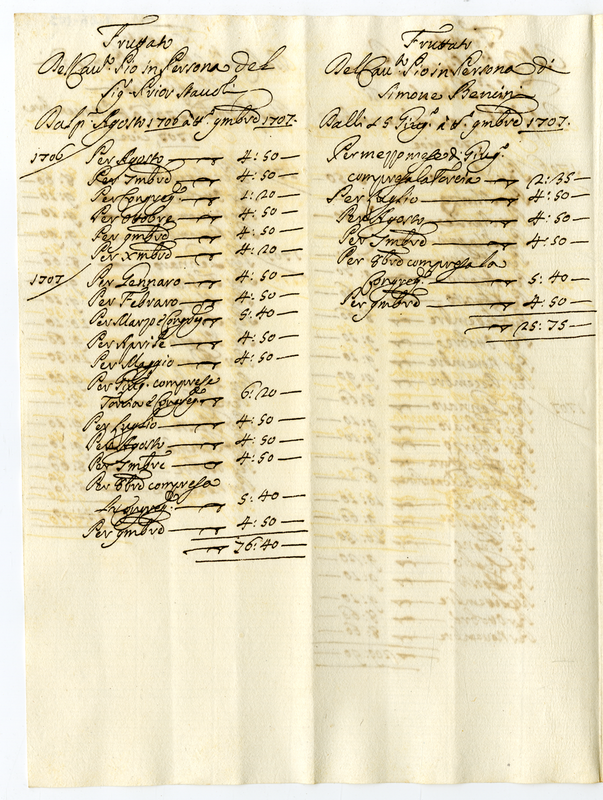 Fruttato
Del Cau.to Pio in Persona del
Sig.r Prior
Da Pmo Agosto 1706 à tt.o 9mbre 1707.
1706 Per Agosto 4:50
Per 7mbre 4:50
Per Congreg.e 1:20
Per Ottobre 4:50
Per 9mbre 4:50
Per Xmbre 4:20
1707 Per Gennaro 4:50
Per Febraro 4:50
Per Marzo è Congreg.e 5:40
Per Aprile 4:50
Per Maggio 4:50
Per Giug.o comprese
Torcia è Congreg.e 6:20
Per Luglio 4:50
Per Agosto 4:50
Per 7mbre 4:50
Per 8bre compresa
la Congreg.e 5:40
Per 9mbre 4:50
76:40
Fruttato
Del Cau.to Pio in Persona di
Simone Bencini
Dalli 15 Giug.o à tt.o 9mbre 1707.
Per mezzo mese di Giug.o
compresa la Torcia 2:35
Per Luglio 4:50
Per Agosto 4:50
Per 7mbre 4:50
Per 8bre compresa la
Congreg.e 5:40
Per 9mbre 4:50
25:75